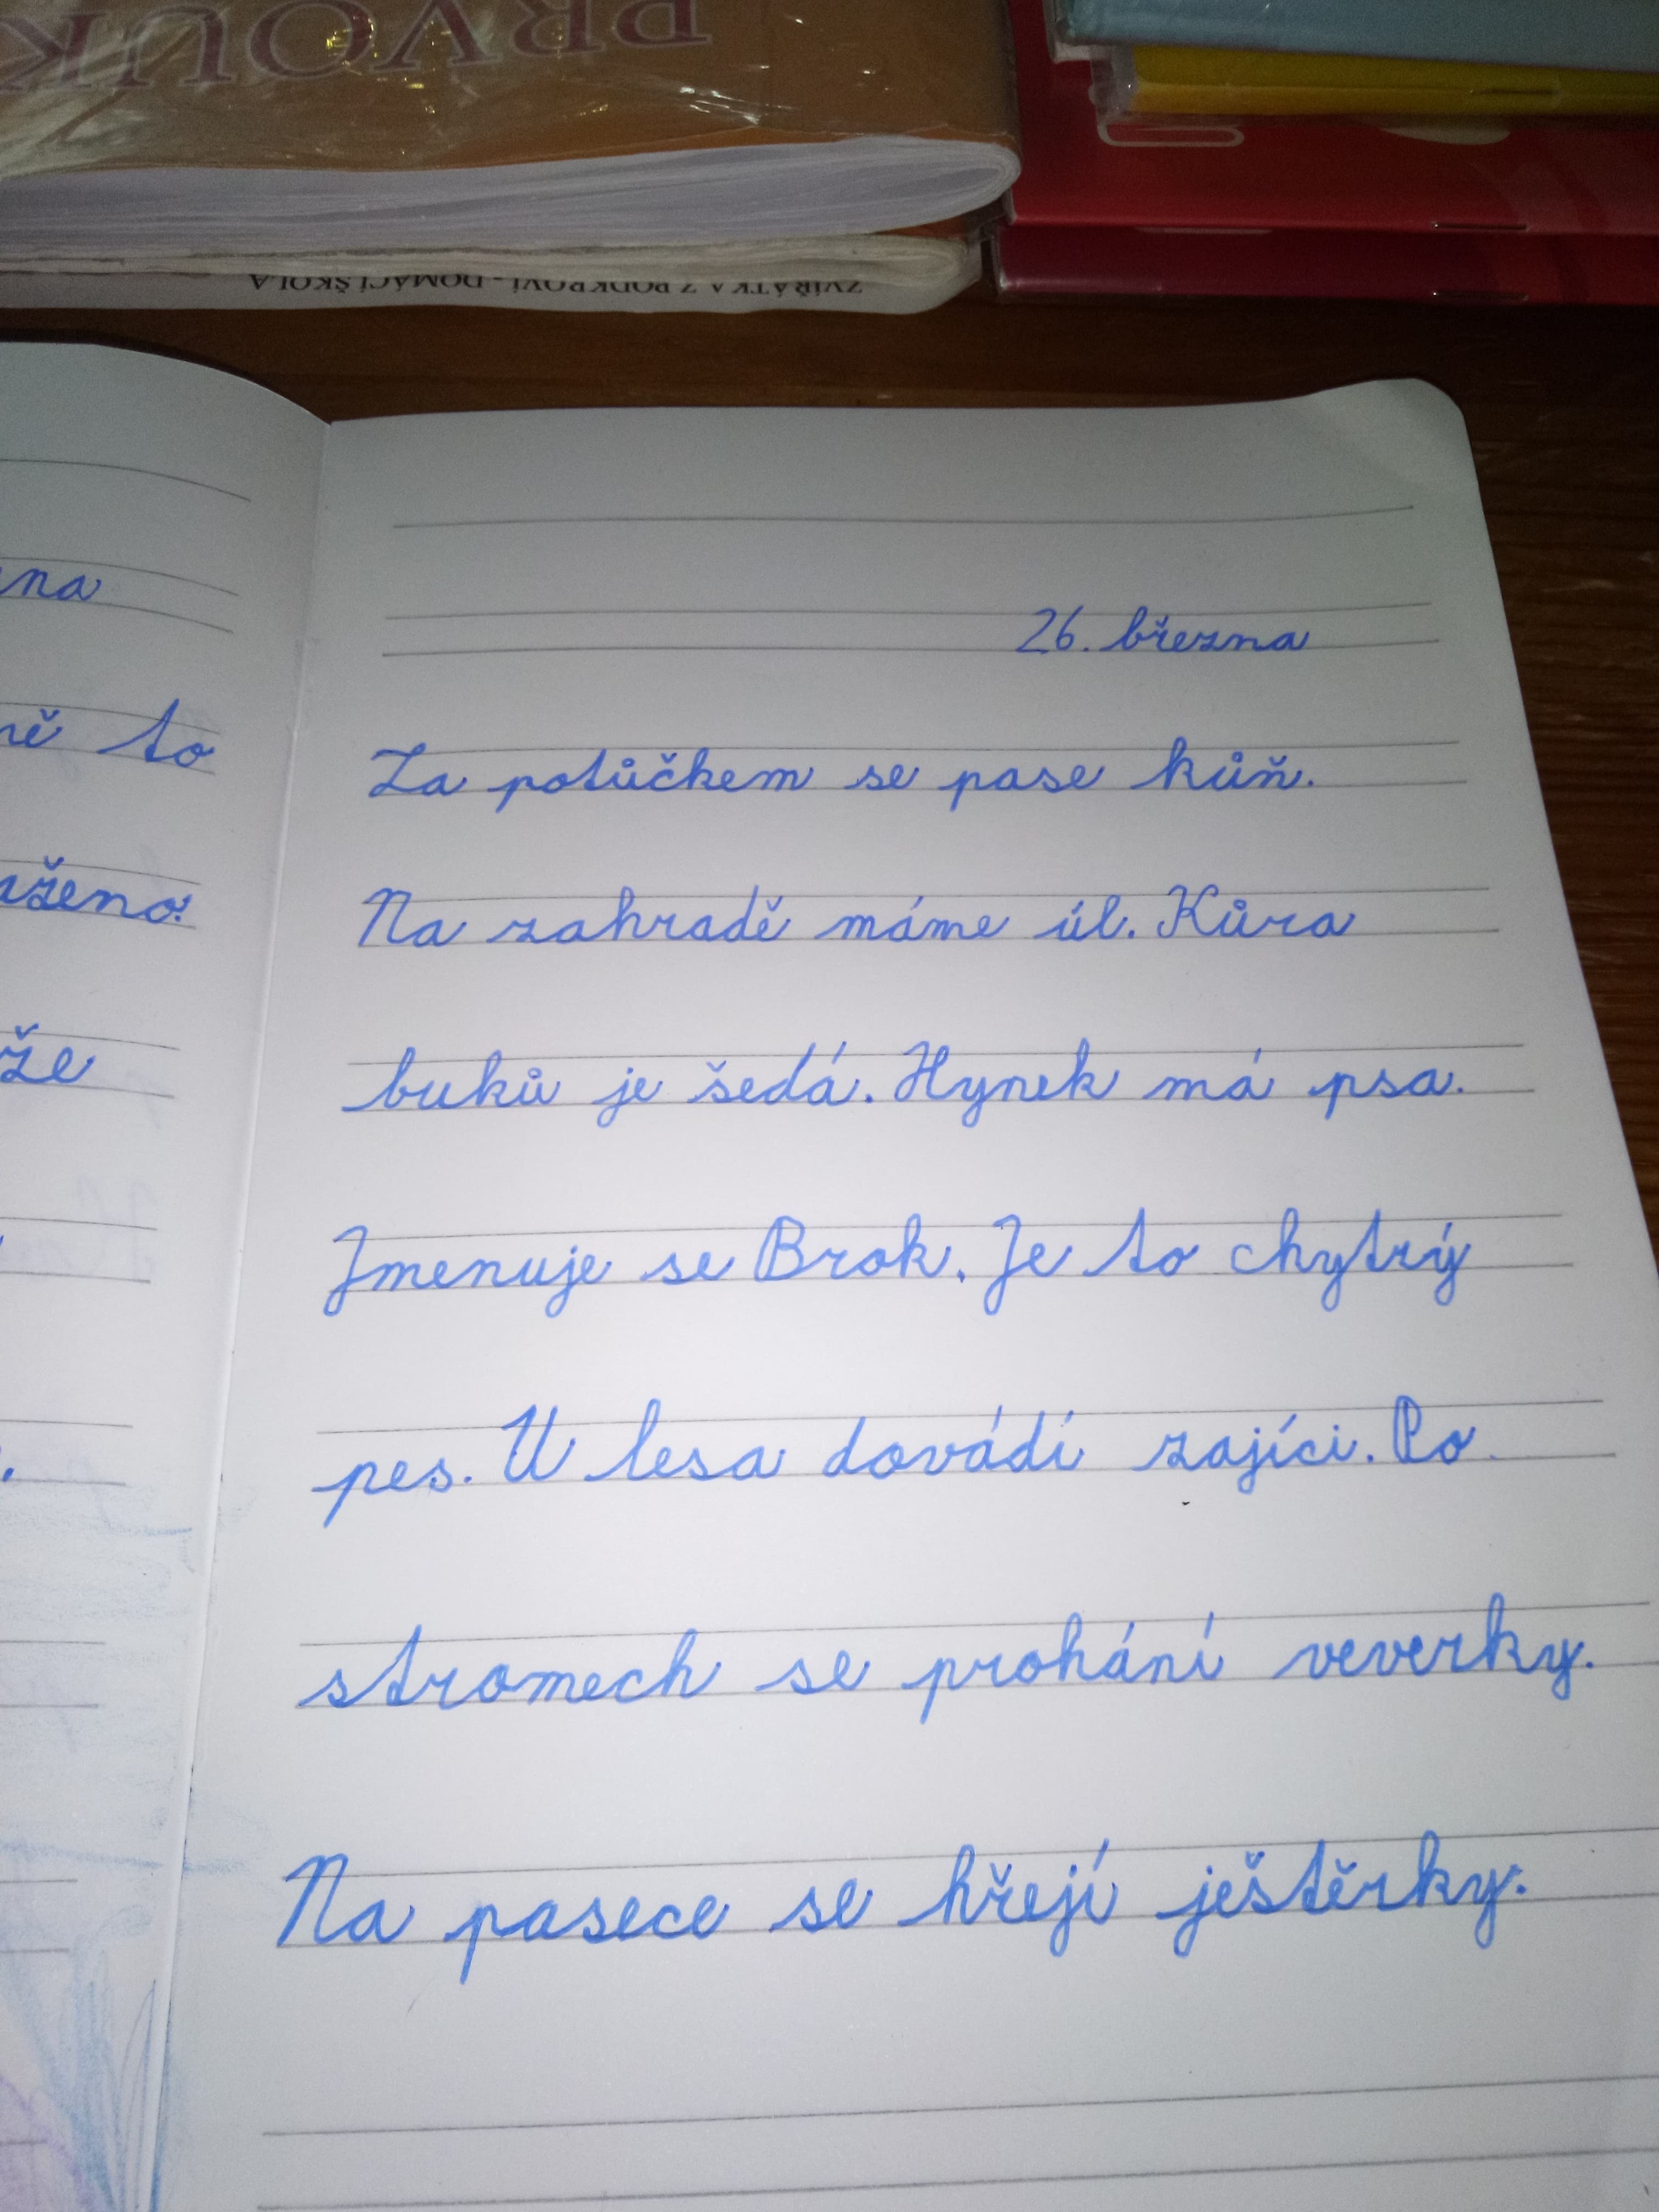 PRVOUK
ZVÍŘÁTKA Z PODKROVÍ - DOMÁCÍ ŠKOLA
to
že
26. března
Za potůčkem se pase kůň.
Na zahradě máme úl. Kůra
buků je šedá. Hynek má psa.
Jmenuje se Brok. Je to chytrý
pes. U lesa dovádí zajíci. Po
stromech se prohání veverky.
Na pasece se hřejí ještěrky.